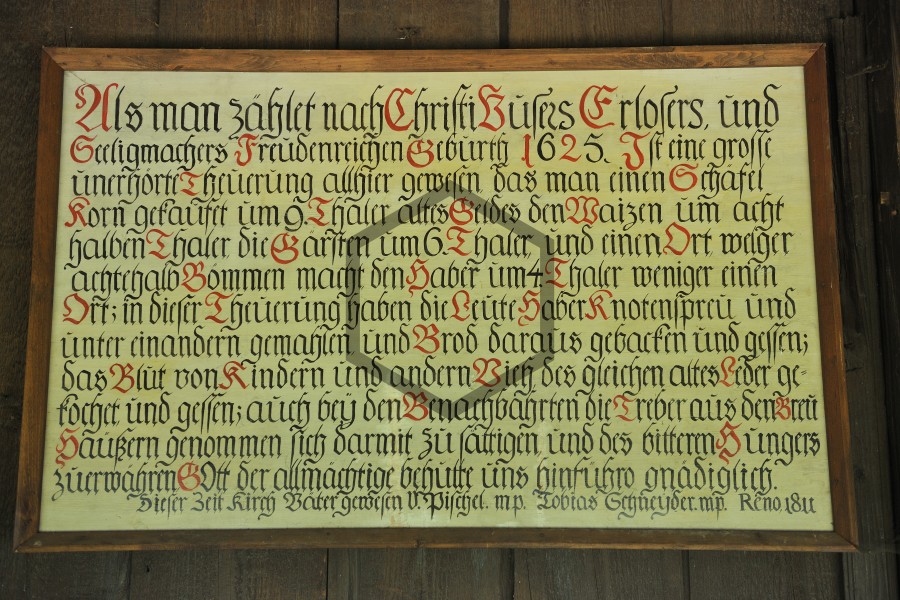 Als man zählet nach Christi Unsers Erlosers, und
Seeligmachers Freudenreichen Geburth 1625. Ist eine grosse
unerhörte Theuerung allhier gewesen das man einen Schäfel
Korn gekaufet um 9. Thaler altes Geldes den Waizen um acht
halben Thaler die Gärsten um 6. Thaler, und einen Ort weiger
achtehalb Bommen macht den Haber um 4 Thaler weniger einen
Ort; in dieser Theuerung haben die Leute Haber Knotenspreu und
unter einandern gemahlen und Brod daraus gebacken und gessen;
das Blut von Kindern und andern Vieh des gleichen altes Leder ge-
kochet und gessen; auch bey den Benachbährten die Treber aus den Breu
Häußern genommen sich darmit zu sättigen und des bitteren Hungers
zuerwähren GOtt der allmächtige behütte uns hinführo gnädiglich.
Dieser Zeit Kirch Väter gewesen V. Pischel. mp. Tobias Schneyder. mp. Reno. 1811